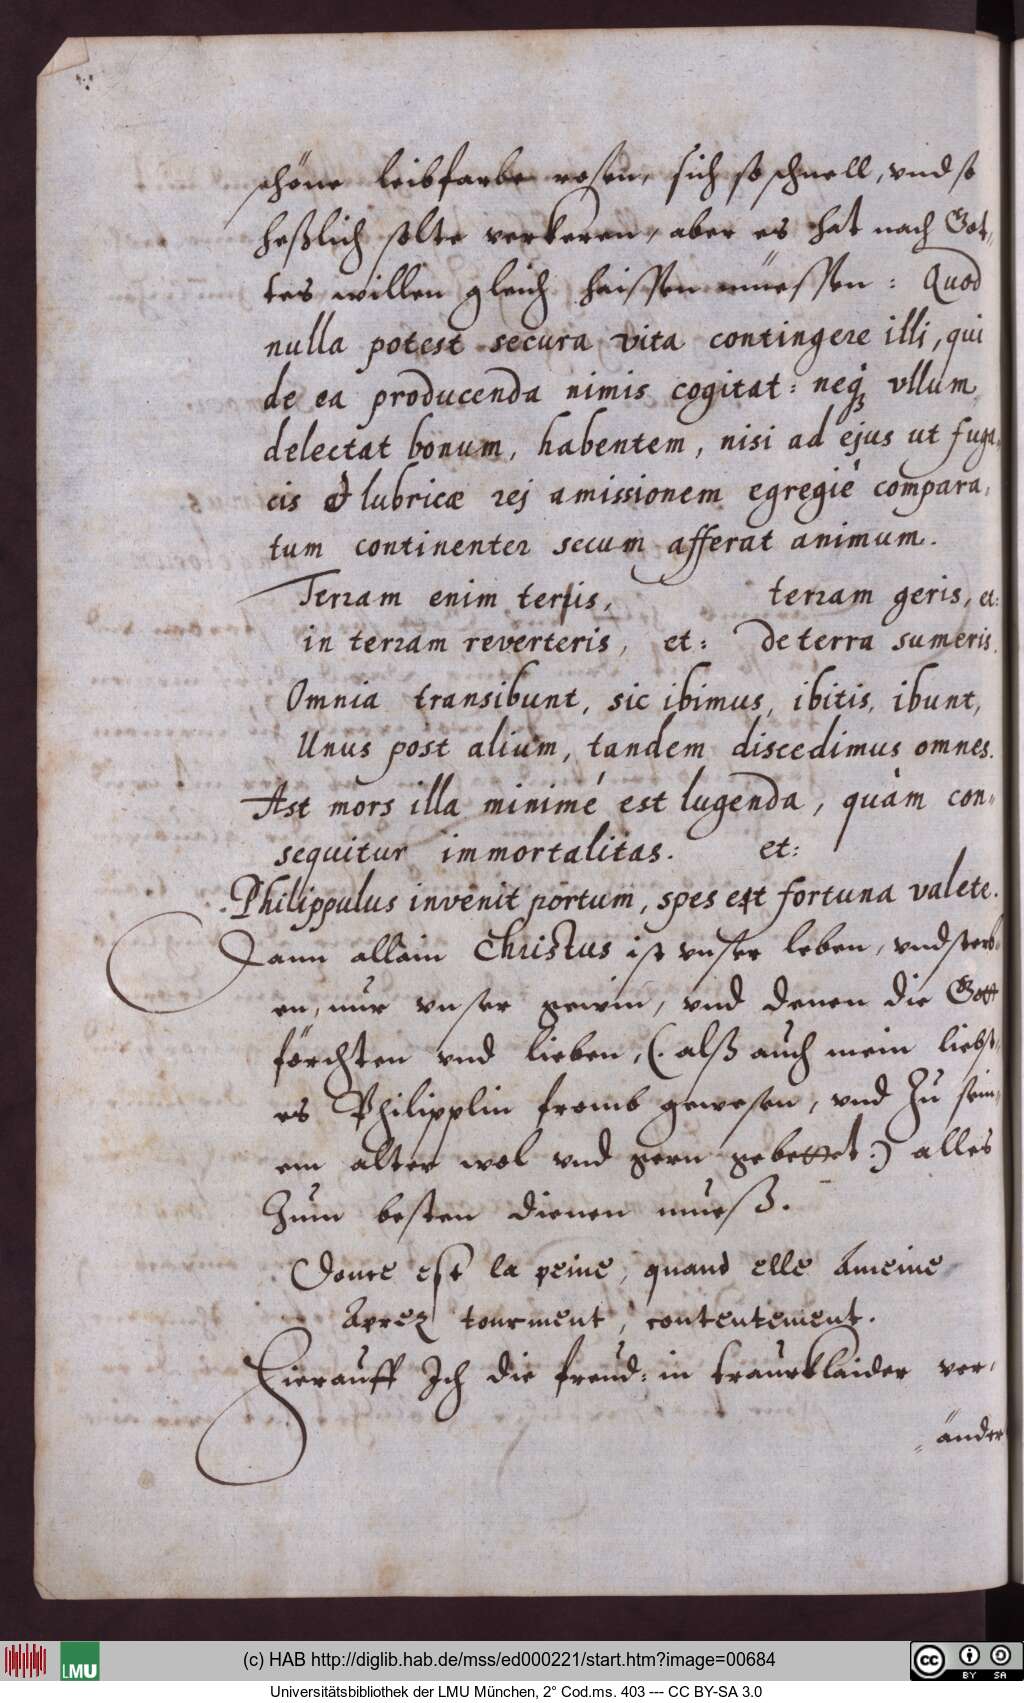 schöne leibfarbe rosen, sich so schnell, vnd so
heßlich solte verkeren, aber es hat nach Got„
tes willen gleich haissen müessen: Quod
nulla potest secura vita contingere illi, qui
de ea producenda nimis cogitat: neq₃ vllum
delectat bonum, habentem, nisi ad ejus ut fuga„
cis et lubricæ rej amissionem egregié compara„
tum continenter secum afferat animum.
Terram enim terris, terram geris, et:
in terram reverteris, et: de terra sumeris.
Omnia transibunt, sic ibimus, ibitis, ibunt,
Unus post alium, tandem discedimus omnes.
Ast mors illa minimé est lugenda, quàm con„
sequitur immortalitas. et:
Philippulus invenit portum, spes et fortuna valete.
Dann allain Christus ist vnser leben, vnd sterb„
en, nur vnser gewin, vnd denen die Gott
förchten vnd lieben, (. alß auch mein liebst„
es Philipplin fromb gewesen, vnd zu sein„
em alter wol vnd gern gebettet:) alles
zum besten dienen mueß.
Douce est la peine, quand elle Ameine
Aprez tourment, contentement.
Hierauff Ich die freud: in traurklaider ver„
„änder
(c) HAB http://diglib.hab.de/mss/ed000221/start.htm?image=00684
LMU
cc BY SA
Universitätsbibliothek der LMU München, 2° Cod.ms. 403 --- CC BY-SA 3.0